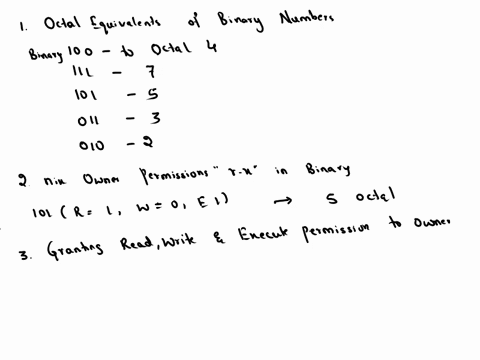 1. Octal Equivalents of Binary Numbers
Binary 100 - to Octal 4
111 - 7
101 - 5
011 - 3
010 - 2
2. nix Owner Permissions "r-x" in Binary
101 (R = 1, W = 0, E 1) → 5 octal
3. Granting Read, Write & Execute permission to Owner